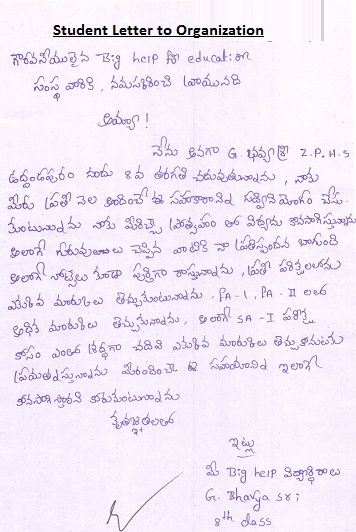 Student Letter to Organization
గౌరవనీయులైన Big help for education
సంస్థ వారికి, నమస్కరించి వ్రాయునది
అమ్మా!
నేను అనగా G. భవ్యశ్రీ Z.P.H.S
ఉద్దండపురం నందు 8వ తరగతి చదువుతున్నాను, నాకు
మీరు ప్రతి నెల అందించే ఈ సహకారాన్ని సద్వినియోగం చేసు
కుంటున్నాను నాకు మీరిచ్చే ప్రోత్సాహం తో విద్యను కొనసాగిస్తున్నాను
అలాగే గురువులు చెప్పిన వాటికి నా ప్రతిస్పందన బాగుంది
అలాగే నోట్సులు కూడా పూర్తిగా రాస్తున్నాను, ప్రతి పరీక్షలలోను
మార్కులు తెచ్చుకుంటున్నాను. FA-I, FA-II లలో
అధిక మార్కులు తెచ్చుకున్నాను, అలాగే SA-I పరీక్ష
కోసం ఎంతో శ్రద్ధగా చదివి మార్కులు తెచ్చుకొనుటకు
ప్రయత్నిస్తున్నాను మీరందించే ఈ సహాయాన్ని ఇలాగే
కొనసాగిస్తారని కోరుకుంటున్నాను
కృతజ్ఞతలతో
ఇట్లు
మీ Big help విద్యార్థిరాలు
G. Bhavya sri
8th class